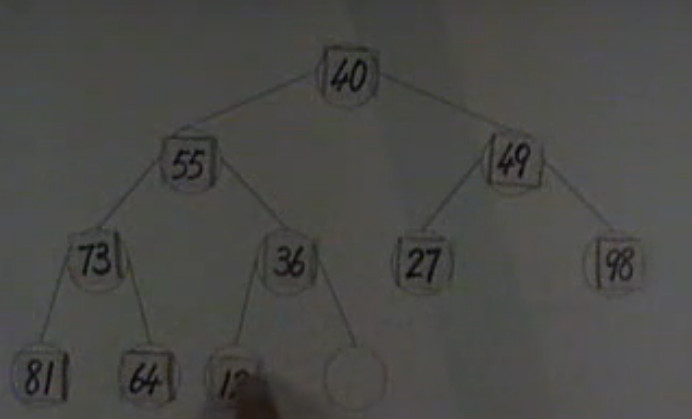 40
55 49
73 36 27 98
81 64 12